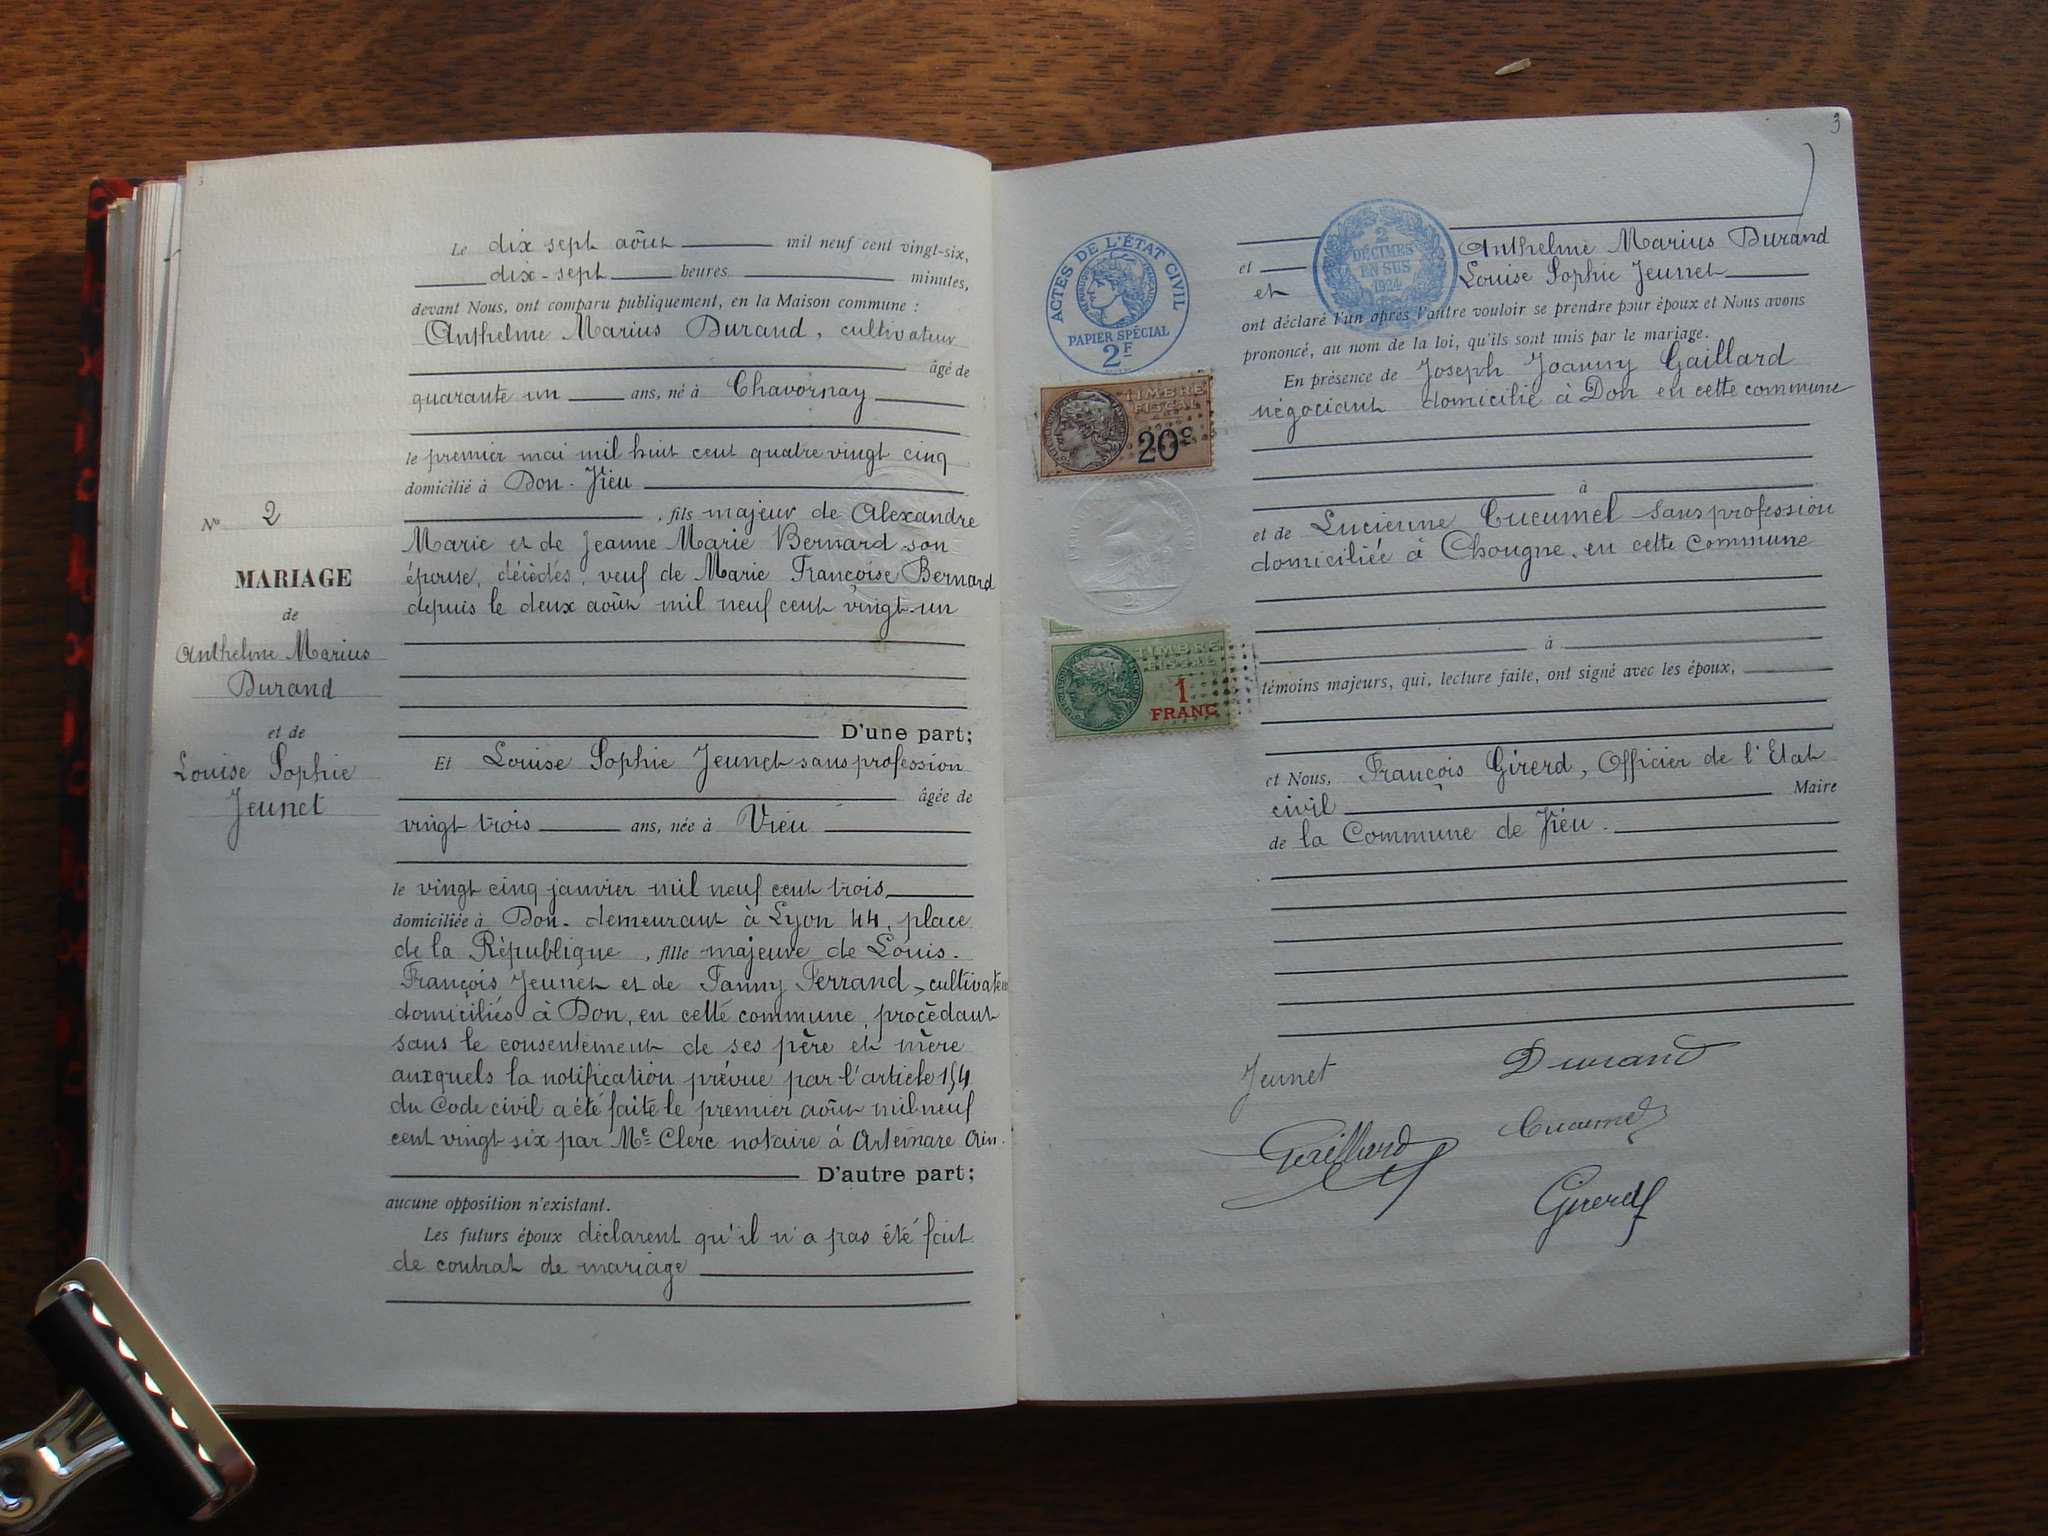 3
Le dix sept août mil neuf cent vingt-six,
dix-sept heures minutes,
devant Nous, ont comparu publiquement, en la Maison commune :
Anthelme Marius Durand, cultivateur
âgé de
quarante un ans, né à Chavornay
le premier mai mil huit cent quatre vingt cinq
domicilié à Don-Vieu
, fils majeur de Alexandre
Marie et de Jeanne Marie Bernard son
épouse, décédés, veuf de Marie Françoise Bernard
depuis le deux août mil neuf cent vingt-un
D'une part;
Et Louise Sophie Jeunet sans profession
âgée de
vingt trois ans, née à Vieu
le vingt cinq janvier mil neuf cent trois
domiciliée à Don-demeurant à Lyon 44, place
de la République, fille majeure de Louis-
François Jeunet et de Fanny Ferrand, cultivateurs
domiciliés à Don, en cette commune, procédant
sans le consentement de ses père et mère
auxquels la notification prévue par l'article 154
du Code civil a été faite le premier août mil neuf
cent vingt six par Me Clerc notaire à Artemare Ain.
D'autre part;
aucune opposition n'existant.
Les futurs époux déclarent qu'il n'a pas été fait
de contrat de mariage
N° 2
MARIAGE
de
Anthelme Marius
Durand
et de
Louise Sophie
Jeunet
3
ACTES DE L'ÉTAT CIVIL
PAPIER SPÉCIAL
2F
2
DÉCIMES
EN SUS
1924
TIMBRE
FISCAL
20c
TIMBRE
FISCAL
1
FRANC
et Anthelme Marius Durand
et Louise Sophie Jeunet
ont déclaré l'un après l'autre vouloir se prendre pour époux et Nous avons
prononcé, au nom de la loi, qu'ils sont unis par le mariage.
En présence de Joseph Joanny Gaillard
négociant domicilié à Don en cette commune
à
et de Lucienne Cucumel sans profession
domiciliée à Chougne, en cette commune
à
témoins majeurs, qui, lecture faite, ont signé avec les époux,
et Nous, François Girerd, Officier de l'Etat
civil Maire
de la Commune de Vieu.
Jeunet Durand
Gaillard Cucumel
Girerd